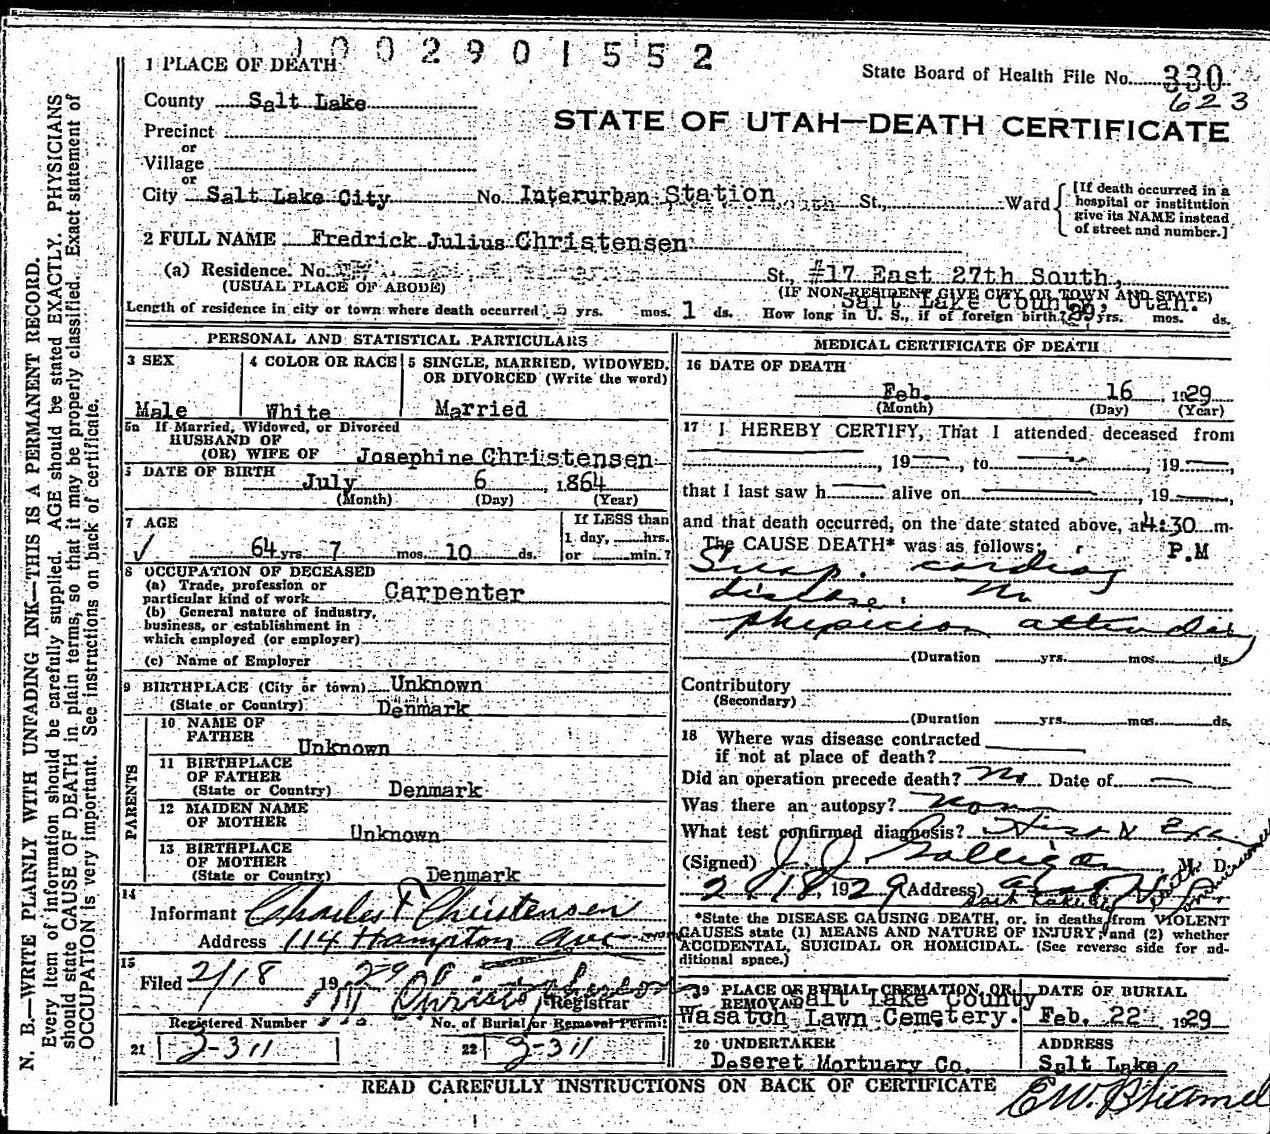 1002901552
1 PLACE OF DEATH
State Board of Health File No. 330
623
County Salt Lake
STATE OF UTAH—DEATH CERTIFICATE
Precinct
or
Village
or
City Salt Lake City No. Interurban Station St., Ward
[If death occurred in a
hospital or institution
give its NAME instead
of street and number.]
2 FULL NAME Fredrick Julius Christensen
(a) Residence. No. St., #17 East 27th South,
(USUAL PLACE OF ABODE) (IF NON-RESIDENT GIVE CITY OR TOWN AND STATE)
Salt Lake County, Utah.
Length of residence in city or town where death occurred yrs. mos. 1 ds. How long in U. S., if of foreign birth? yrs. mos. ds.
PERSONAL AND STATISTICAL PARTICULARS
3 SEX 4 COLOR OR RACE 5 SINGLE, MARRIED, WIDOWED,
OR DIVORCED (Write the word)
Male White Married
5a If Married, Widowed, or Divorced
HUSBAND OF
(OR) WIFE OF Josephine Christensen
DATE OF BIRTH
July 6 , 1864
(Month) (Day) (Year)
7 AGE If LESS than
1 day, hrs.
64 yrs. 7 mos. 10 ds. or min.?
8 OCCUPATION OF DECEASED
(a) Trade, profession or
particular kind of work Carpenter
(b) General nature of industry,
business, or establishment in
which employed (or employer)
(c) Name of Employer
9 BIRTHPLACE (City or town) Unknown
(State or Country) Denmark
PARENTS
10 NAME OF
FATHER
Unknown
11 BIRTHPLACE
OF FATHER
(State or Country) Denmark
12 MAIDEN NAME
OF MOTHER
Unknown
13 BIRTHPLACE
OF MOTHER
(State or Country) Denmark
14
Informant Charles F Christensen
Address 114 Hampton Ave
15
Filed 2/18 1929
Registrar
Registered Number No. of Burial or Removal Permit
21 2-311 22 2-311
MEDICAL CERTIFICATE OF DEATH
16 DATE OF DEATH
Feb. 16 , 1929
(Month) (Day) (Year)
17 I HEREBY CERTIFY, That I attended deceased from
, 19 , to , 19 ,
that I last saw h alive on , 19 ,
and that death occurred, on the date stated above, at 4:30 m.
The CAUSE DEATH* was as follows: P.M
disease. No
physician attended
(Duration yrs. mos. ds.
Contributory
(Secondary)
(Duration yrs. mos. ds.
18 Where was disease contracted
if not at place of death?
Did an operation precede death? No Date of
Was there an autopsy?
What test confirmed diagnosis?
(Signed) J. J. Galligan M. D.
2/18, 1929 (Address)
*State the DISEASE CAUSING DEATH, or, in deaths from VIOLENT
CAUSES state (1) MEANS AND NATURE OF INJURY, and (2) whether
ACCIDENTAL, SUICIDAL OR HOMICIDAL. (See reverse side for ad-
ditional space.)
19 PLACE OF BURIAL CREMATION, OR
REMOVAL Salt Lake County
Wasatch Lawn Cemetery.
DATE OF BURIAL
Feb. 22 , 1929
20 UNDERTAKER ADDRESS
Deseret Mortuary Co. Salt Lake
READ CAREFULLY INSTRUCTIONS ON BACK OF CERTIFICATE
N. B.—WRITE PLAINLY WITH UNFADING INK—THIS IS A PERMANENT RECORD.
Every item of information should be carefully supplied. AGE should be stated EXACTLY. PHYSICIANS
should state CAUSE OF DEATH in plain terms, so that it may be properly classified. Exact statement of
OCCUPATION is very important. See instructions on back of certificate.